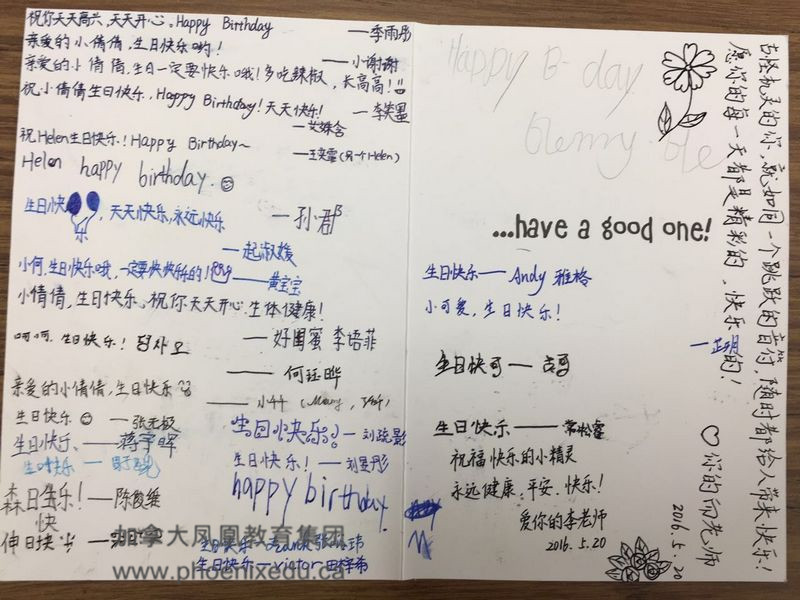 祝你天天高兴,天天开心。Happy Birthday
—李雨彤
亲爱的小倩倩,生日快乐哟!
—小谢谢
亲爱的小倩倩,生日一定要快乐哦!多吃辣椒,长高高!
祝小倩倩生日快乐,Happy Birthday!天天快乐!
祝Helen生日快乐!Happy Birthday~
(另一个Helen)
Helen happy birthday.
生日快乐,天天快乐,永远快乐
—孙郡
小何,生日快乐哦,一定要快快乐乐的!
—黄宝宝
小倩倩,生日快乐,祝你天天开心,生体健康!
—好闺蜜 李语菲
呵呵,生日快乐!
—何钰晔
亲爱的小倩倩,生日快乐
生日快乐 —张无极
生日快乐 —蒋宇晖
生日快乐 —
生日快乐! —陈俊继
生日快乐 —刘晓影
生日快乐! —刘昱彤
happy birthday
生日快乐
生日快乐 —victor
Happy B-day
...have a good one!
生日快乐 — Andy 雅格
小可爱,生日快乐!
生日快可 — 吉哥
生日快乐 —
祝福快乐的小精灵
永远健康、平安、快乐!
爱你的李老师
2016.5.20
古怪机灵的你,就如同一个跳跃的音符,随时都给人带来快乐!
愿你的每一天都是精彩的、快乐的!
♡你的向老师
2016.5.20
加拿大凤凰教育集团
www.phoenixedu.ca